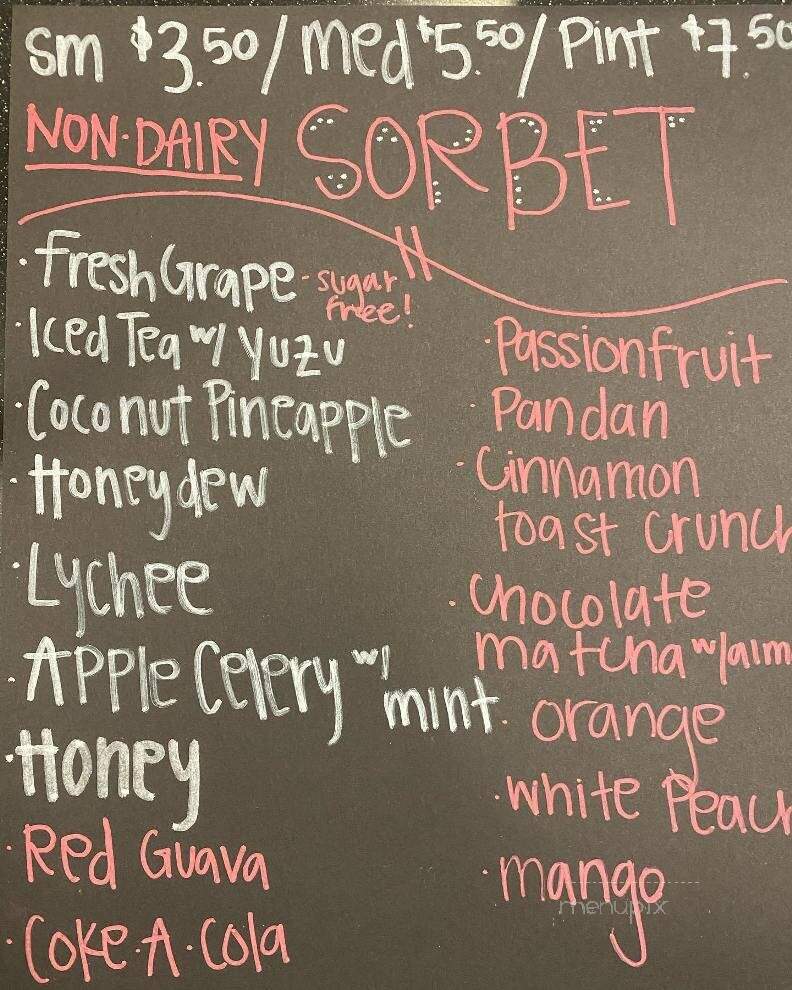 sm $3.50/med $5.50/Pint $7.50
NON-DAIRY SORBET
·Fresh Grape - sugar free!
·Iced Tea w/ Yuzu
·Coconut Pineapple
·Honeydew
·Lychee
·Apple Celery w/ mint
·Honey
·Red Guava
·Coke·A·Cola
·Passionfruit
·Pandan
·Cinnamon
toast crunch
·chocolate
matcha w/alm
·orange
·white Peach
·mango
menupix